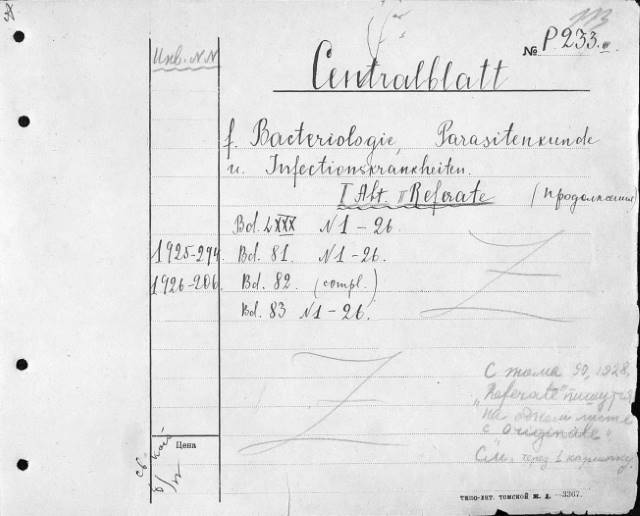 Инв. N N
№ P 233.
Centralblatt
f. Bacteriologie, Parasitenkunde
u. Infectionskrankheiten.
I Abt. II Referate (продолжения
Bd. LXXX N 1 - 26.
1925-294 Bd. 81. N 1 - 26.
1926-206. Bd. 82. (compl.)
Bd. 83 N 1 - 26.
С тома 90, 1928,
"Referate" пишутся
на одном листе
с "originale"
См. через 1 карточку.
Цена
типо-лит. томской ж. д. —3367.